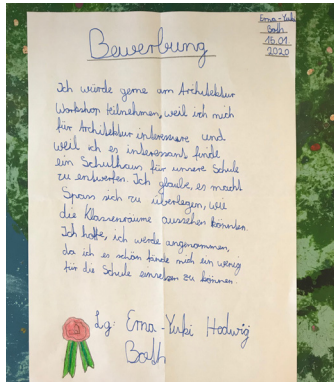 Erna-Yuki
15.01
2020
Bewerbung
Ich würde gerne am Architektur
Workshop teilnehmen, weil ich mich
für Architektur interessiere und
weil ich es interessant finde
ein Schulhaus für unsere Schule
zu entwerfen. Ich glaube, es macht
Spass sich zu überlegen, wie
die Klassenräume aussehen könnten.
Ich hoffe, ich werde angenommen,
da ich es schön fände mich ein wenig
für die Schule einsetzen zu können.
Lg: Erna-Yuki Hedwig